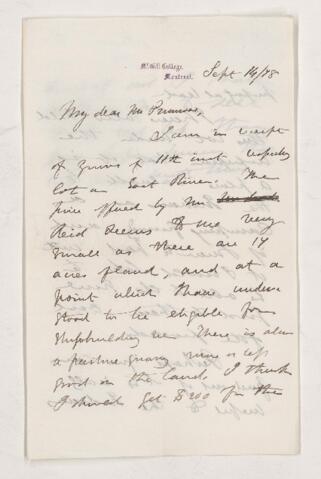 McGill College,
Montreal.
Sept 14/78
My dear Mr Primrose,
I am in receipt
of yours of 11th inst respecting
lot on East River. The
price offered by Mr
Reid seems to me very
small as there are 14
acres of land, and at a
point which I have under
stood to be eligible for
shipbuilding &c. There is also
a freestone quarry more or less
good on the land. I think
I should get $200 for the